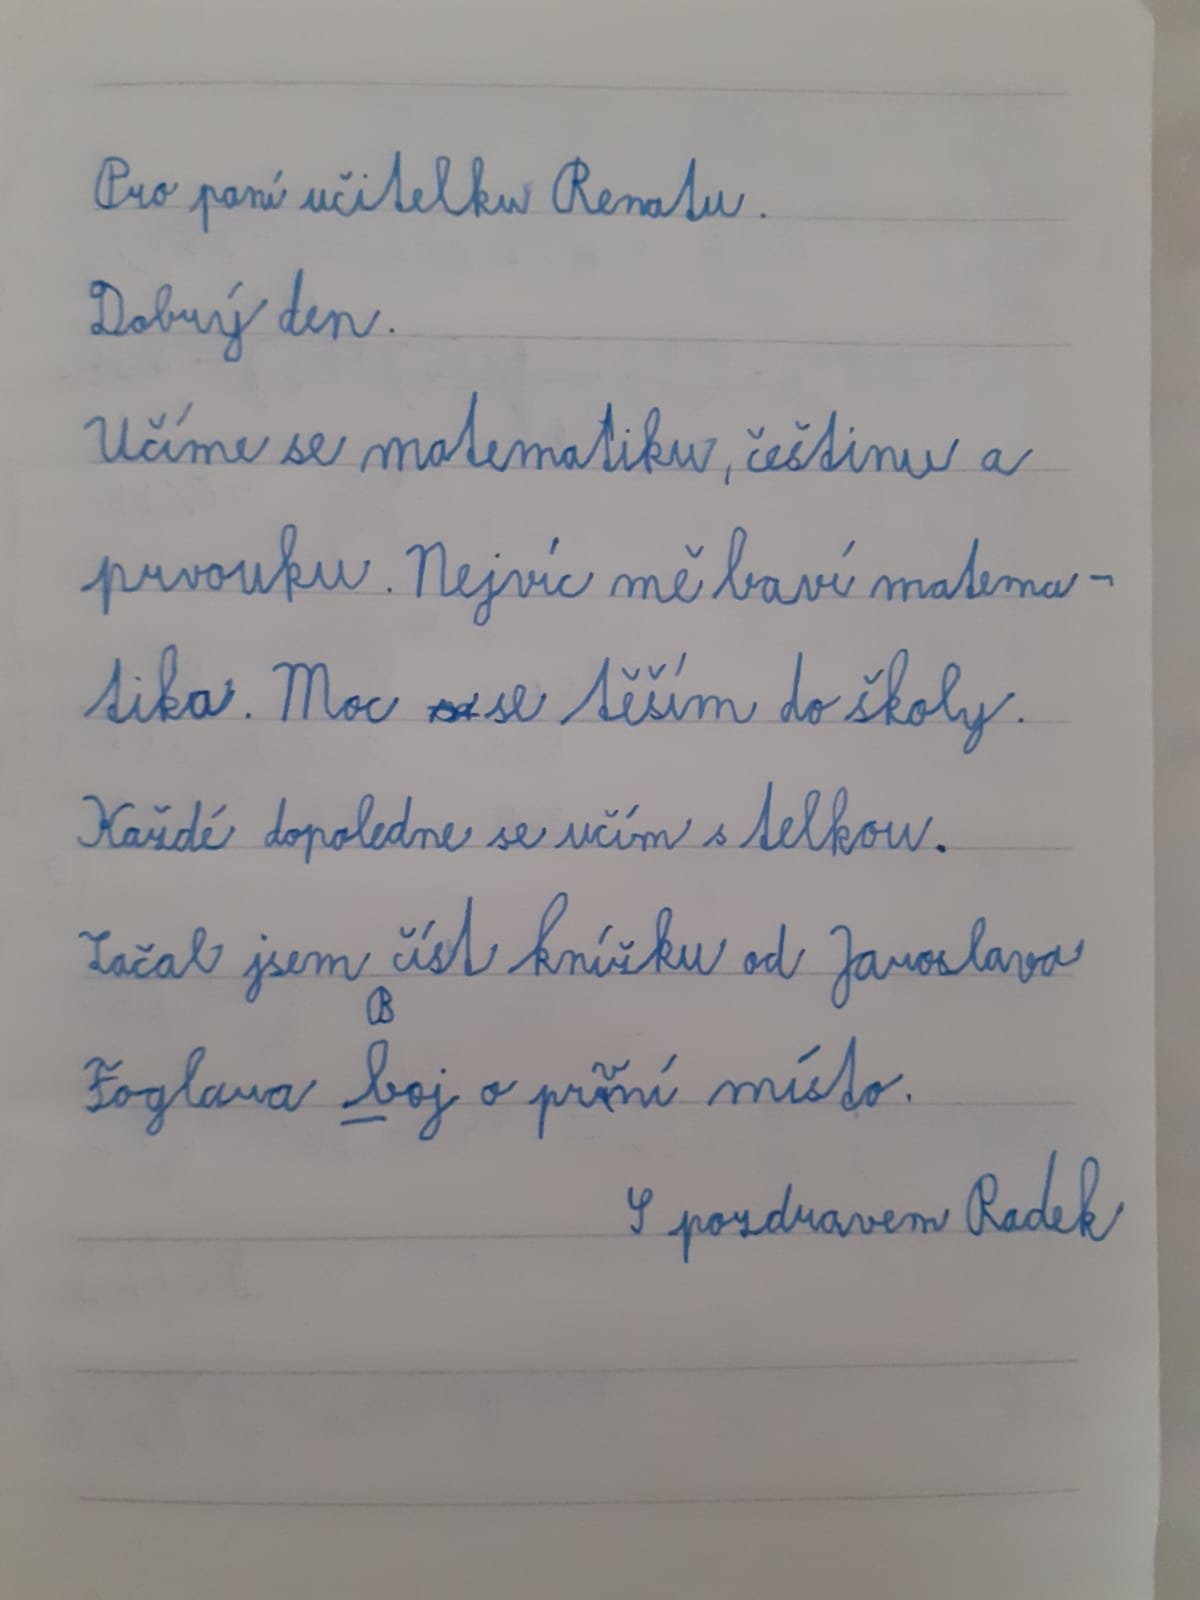 Pro paní učitelku Renatu.
Dobrý den.
Učíme se matematiku, češtinu a
prvouku. Nejvíc mě baví matema-
tika. Moc se těším do školy.
Každé dopoledne se učím s telkou.
Začal jsem číst knížku od Jaroslava
B
Foglara boj o místo.
S pozdravem Radek